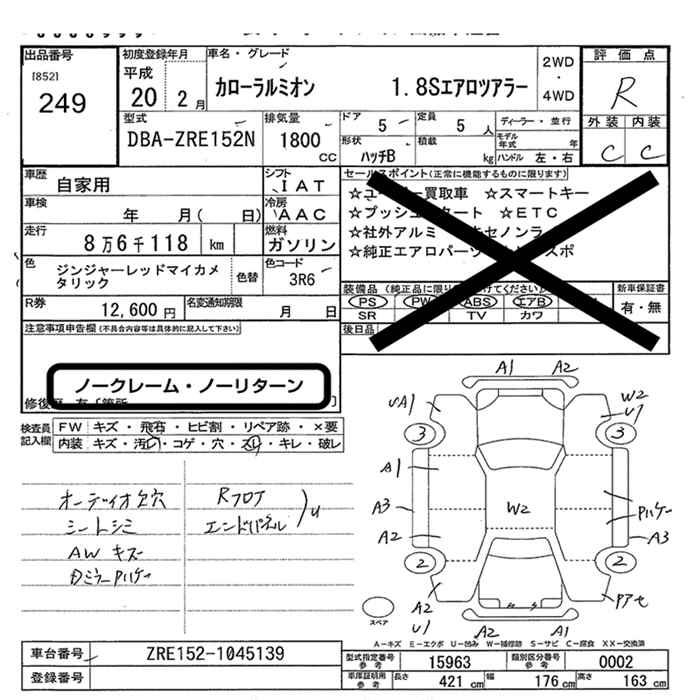 出品番号
[852]
249
初度登録年月
平成
20 2月
車名・グレード
カローラルミオン 1.8Sエアロツアラー
2WD
・
4WD
評価点
R
外装 内装
C C
型式
DBA-ZRE152N
排気量
1800
cc
ドア
5
定員
5 人
ディーラー・並行
形状
ハッチB
積載
kg
モデル
年式
年
ハンドル 左・右
車歴
自家用
シフト
IAT
車検
年 月( 日)
冷房
AAC
走行
8万6千118 km
燃料
ガソリン
色
ジンジャーレッドマイカメ
タリック
色替
色コード
3R6
R券
12,600円
名変通知期限
月 日
セールスポイント(正常に機能するものに限ります)
買取車 ☆スマートキー
☆プッシュ タート ☆ETC
☆社外アルミ キセノンラ
☆純正エアロパーツ スポ
装備品
PS PW ABS エアB
SR TV カワ
新車保証書
有・無
後日品
注意事項申告欄 (不具合内容等は具体的に記入して下さい)
ノークレーム・ノーリターン
検査員
記入欄
FW キズ・飛石・ヒビ割・リペア跡・×要
内装 キズ・汚レ・コゲ・穴・スレ・キレ・破レ
オーディオ欠穴
シートシミ
AWキズ
Rフロア
エンドパネル
u
A1 A2
UA1
W2
U1
3 3
A1
A3
A2
W2
Pハゲ
A3
2 2
A2
U
A2 A1
スペア
A-キズ E-エクボ U-凹み W-補修跡 S-サビ C-腐食 XX-交換済
車台番号
ZRE152-1045139
登録番号
型式指定番号
参考
15963
類別区分番号
参考
0002
車庫証明用
参考
長さ 421 cm 幅 176 cm 高さ 163 cm